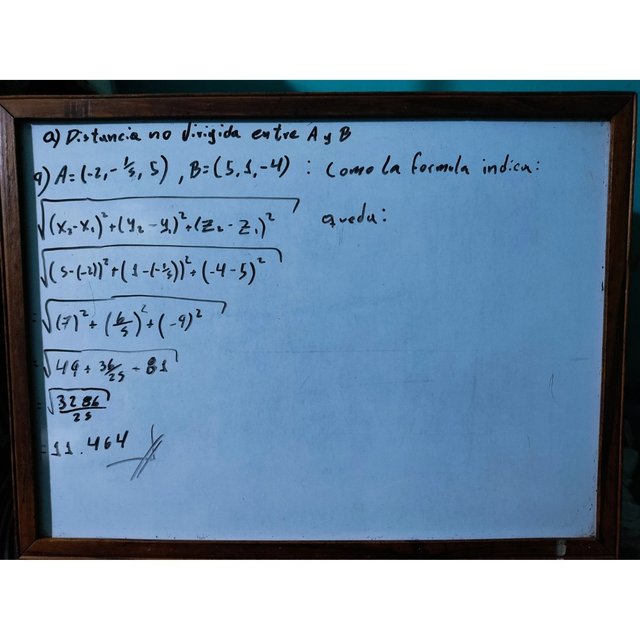 a) Distancia no dirigida entre A y B
a) A=(-2,-1/5, 5) , B=(5,1,-4) : Como la formula indica:
√((x₂-x₁)²+(y₂-y₁)²+(z₂-z₁)² queda:
√((5-(-2))²+(1-(-1/5))²+(-4-5)²
=√(7)²+(6/5)²+(-9)²
=√49+36/25+81
=√3286/25
=11.464